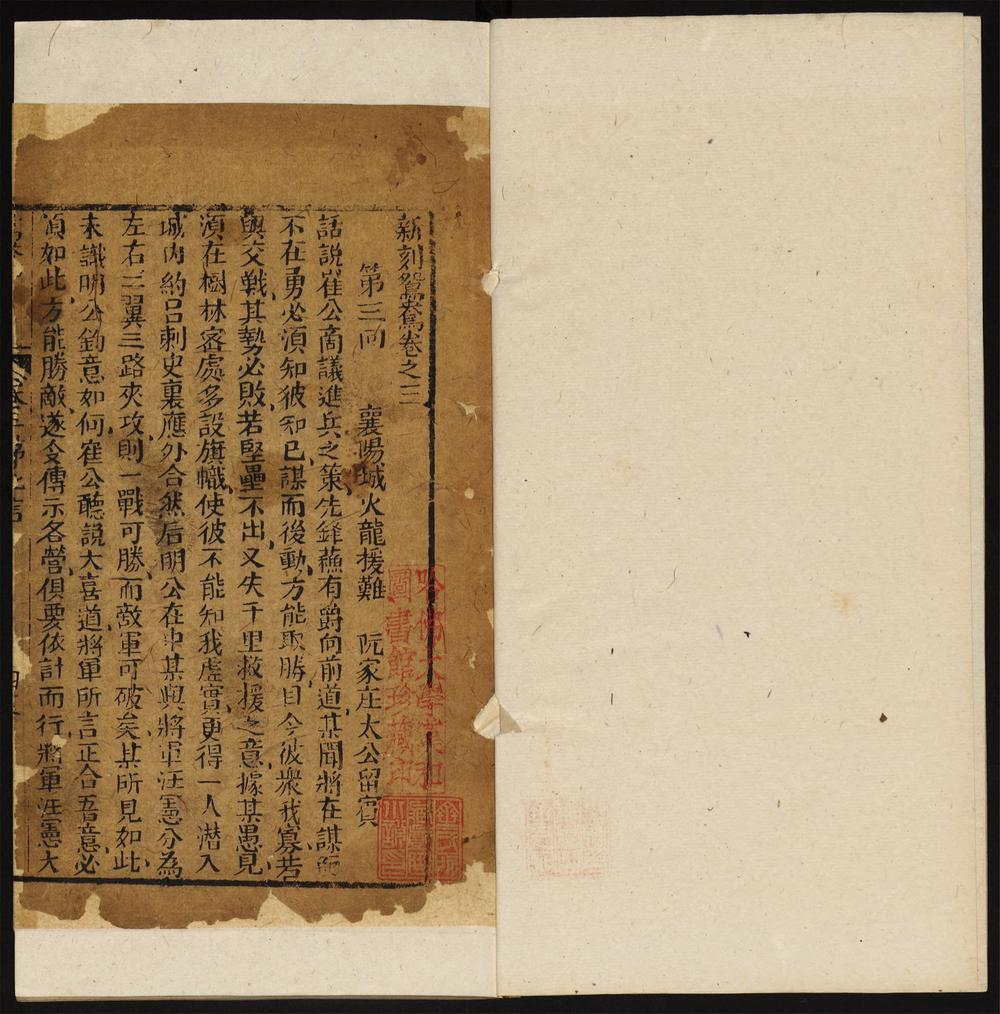 新刻鴛鴦卷之三
第三回　襄陽城火龍援難　阮家庄太公留賓
話說崔公商議進兵之策先鋒蘓有爵向前道某聞將在謀而
不在勇必湏知彼知已謀而後動方能取勝目今彼衆我寡若
與交戰其勢必敗若堅壘不出又失千里救援之意據某愚見
湏在樹林密處多設旗幟使彼不能知我虗實更得一人潜入
城內約吕刺史裏應外合然后明公在中某與將軍汪憲分為
左右二翼三路夾攻則一戰可勝而敵軍可破矣某所見如此
未識明公鈞意如何崔公聽說大喜道將軍所言正合吾意必
湏如此方能勝敵遂令傳示各營俱要依計而行將軍汪憲大
哈佛大學漢和
圖書館珍藏印